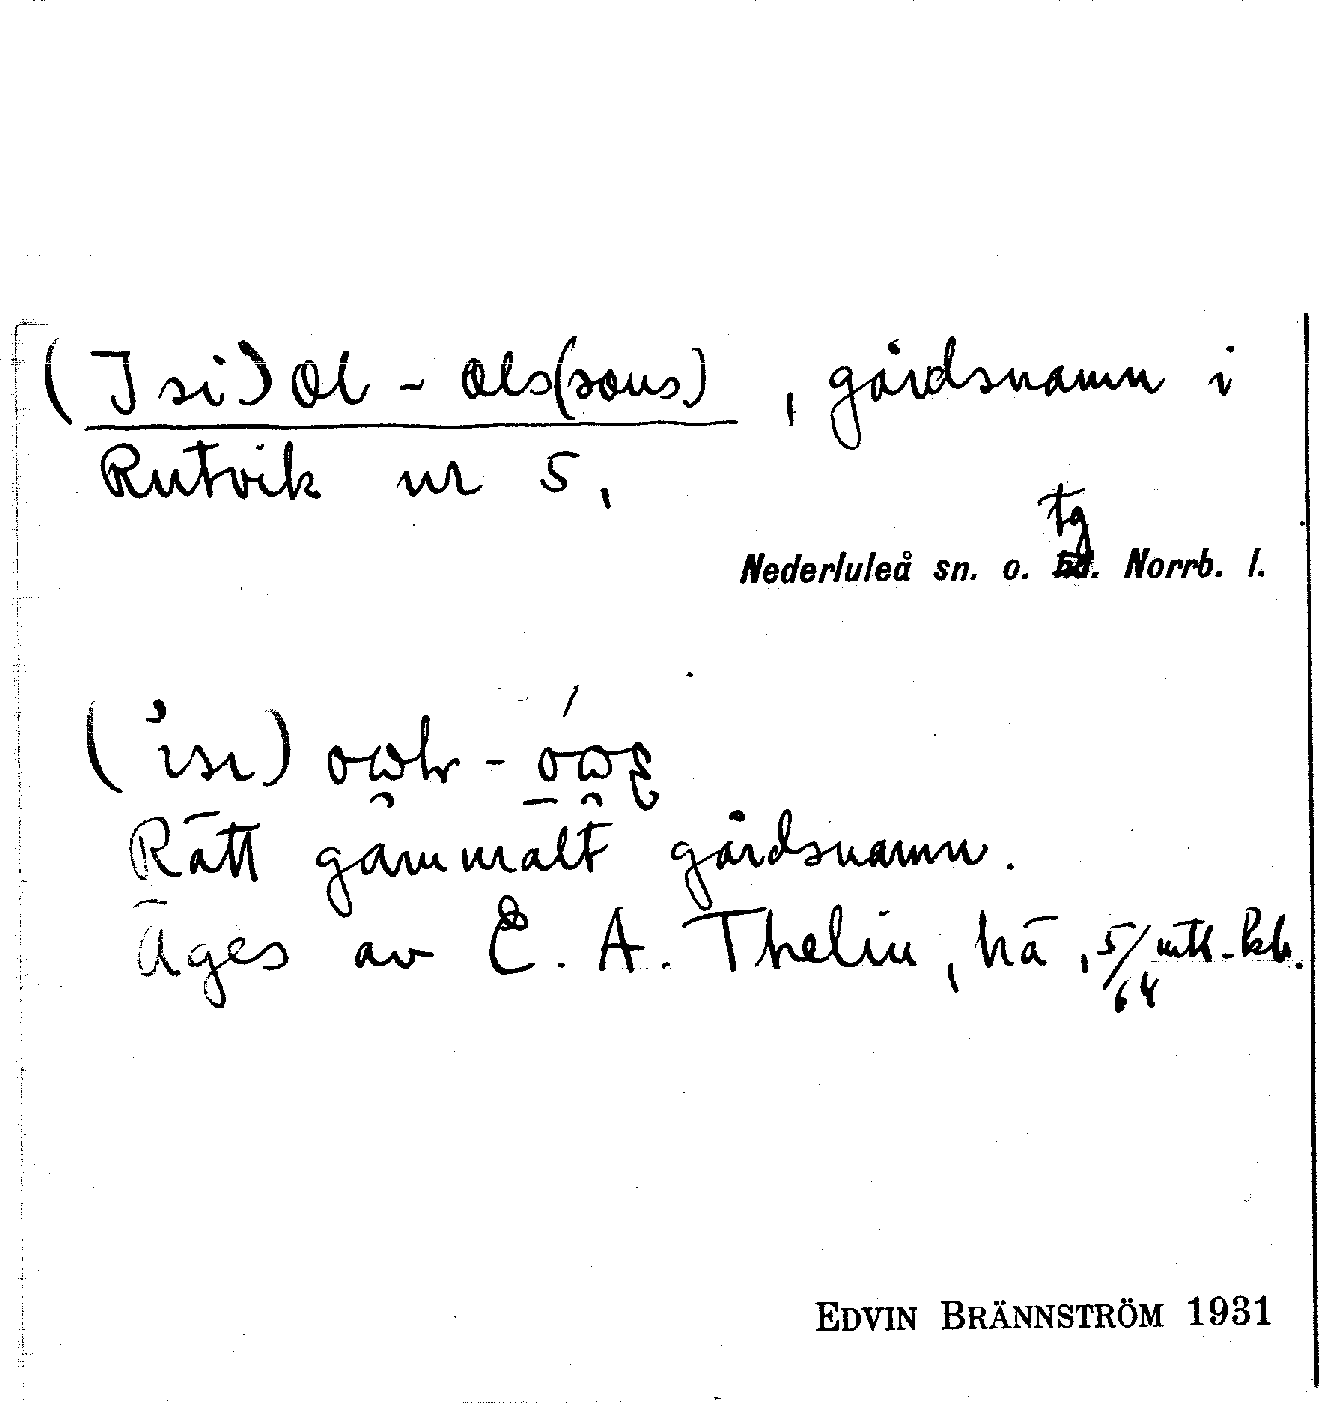 (Isi) Ol - Ols(sons), gårdsnamn i
Rutvik nr 5,
tg
Nederluleå sn. o. Norrb. l.
Rätt gammalt gårdsnamn.
Äges av E. A. Thelin, hä, 5/64 mtl - kr.
EDVIN BRÄNNSTRÖM 1931